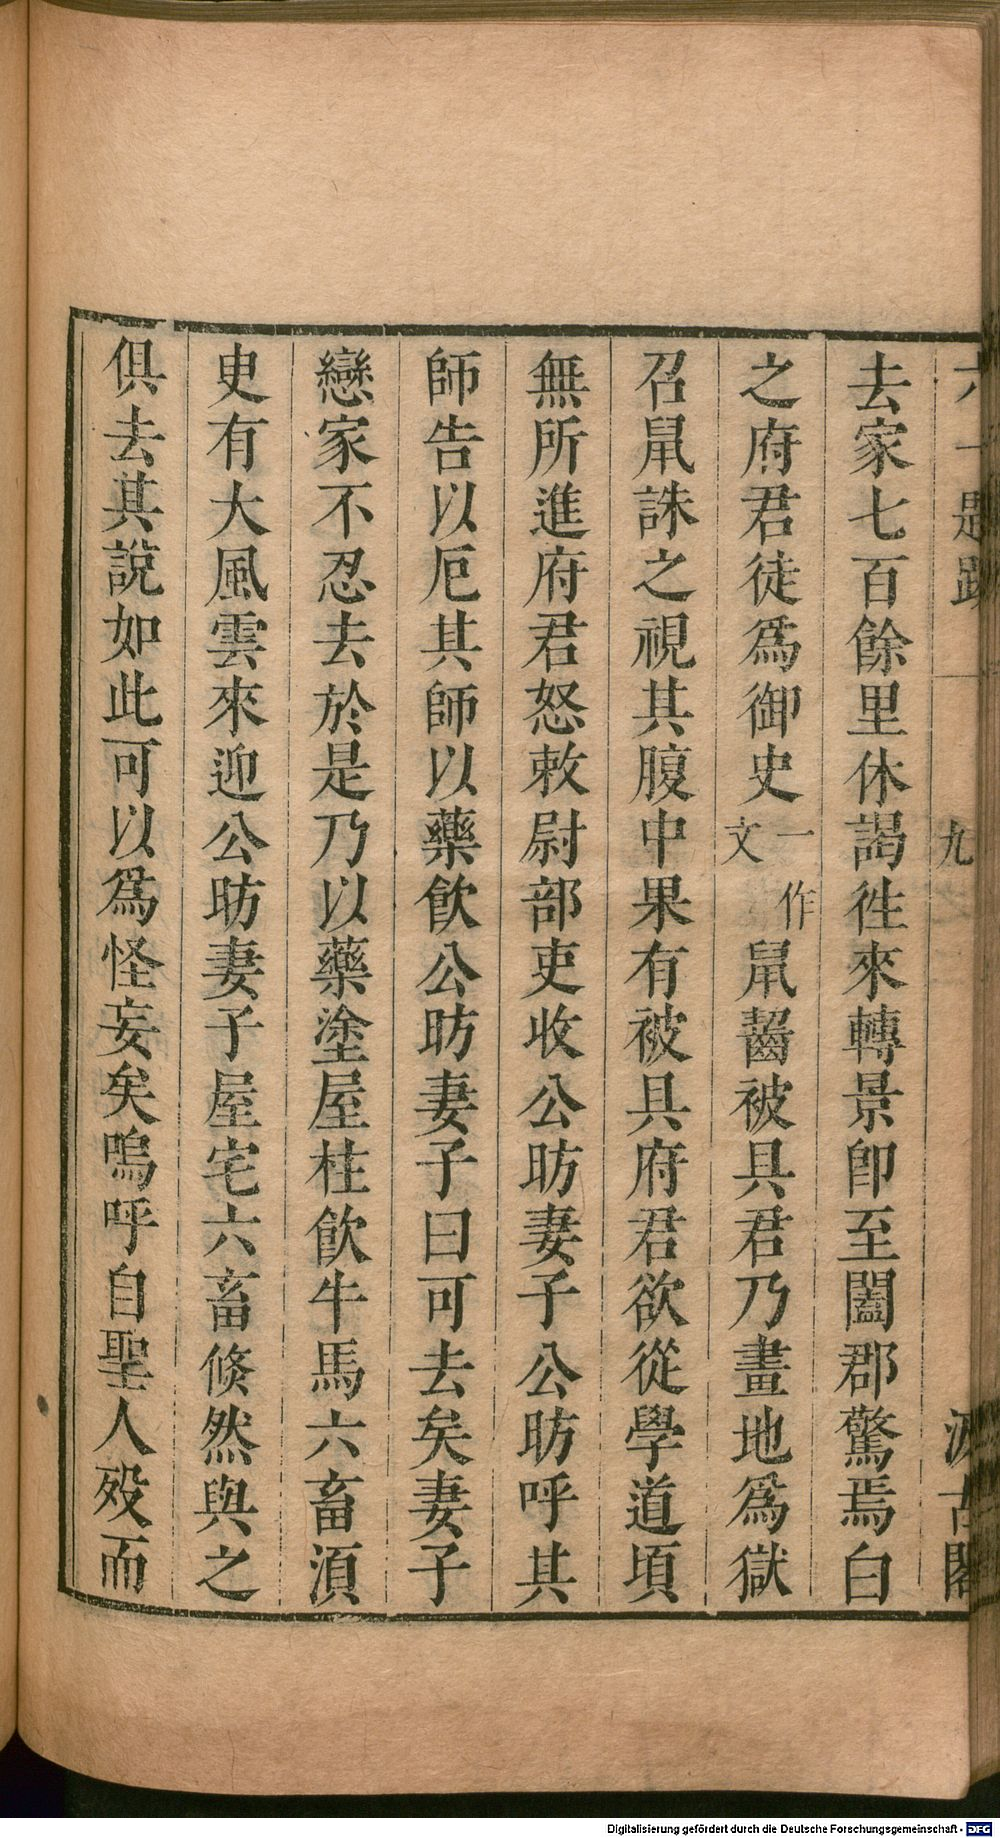 六一題跋 九 汲古閣
去家七百餘里休謁徃來轉景卽至闔郡驚焉白
之府君徒爲御史一作文鼠齧被具君乃畫地爲獄
召鼠誅之視其腹中果有被具府君欲從學道頃
無所進府君怒敕尉部吏收公昉妻子公昉呼其
師告以厄其師以藥飮公昉妻子曰可去矣妻子
戀家不忍去於是乃以藥塗屋柱飮牛馬六畜湏
臾有大風雲來迎公昉妻子屋宅六畜倏然與之
俱去其說如此可以爲怪妄矣嗚呼自聖人歿而
Digitalisierung gefördert durch die Deutsche Forschungsgemeinschaft - DFG